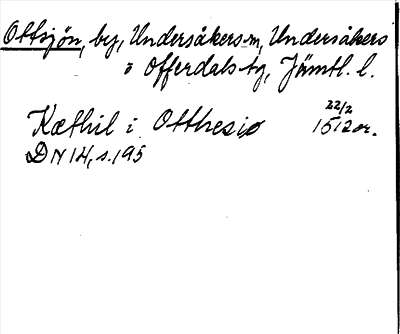 Ottsjön, by, Undersåkers sn, Undersåkers
o Offerdals tg, Jämtl. l.
Kæthil i Otthesiø 22/2 1512 or.
DN 14, s. 195